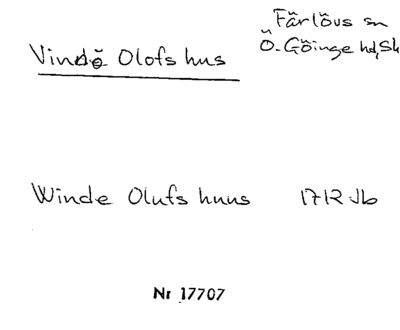 Färlövs sn
Vindö Olofs hus
Ö. Göinge hd, Sk
Winde Olufs huus 1712 Jb
Nr 17707